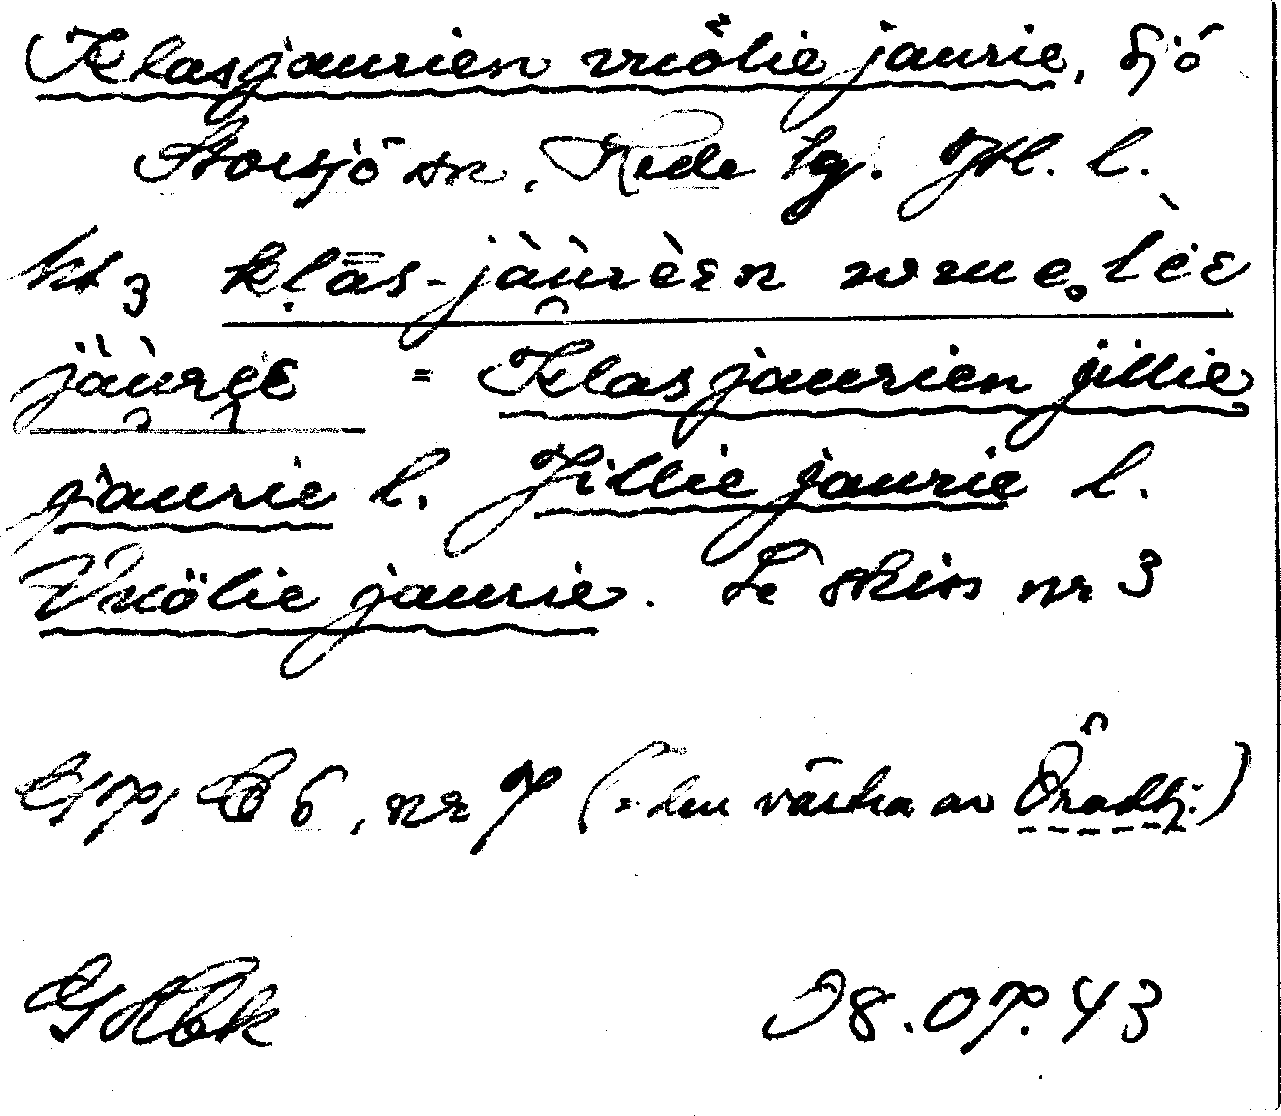 Klasjaurien vuölie jaurie, Sjö
Storsjö sn, Hede tg. Jtl. l.
klās-jàùrèɛn
jàùrèɛ = Klasjaurien jillie
jaurie l. Jillie jaurie l.
Vuölie jaurie. Se skiss nr 3
nr 7 (= den västra av Öradtj.)
28.07.43